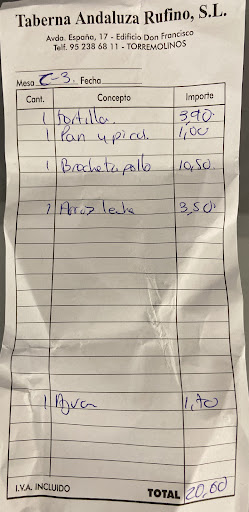 Taberna Andaluza Rufino, S.L.
Avda. España, 17 - Edificio Don Francisco
Telf. 95 238 68 11 - TORREMOLINOS
Mesa C-3. Fecha
Cant. Concepto Importe
1 Tortilla 3,90
1 Pan y picos 1,00
1 Brocheta pollo 10,50
1 Arroz leche 3,50
1 Agua 1,70
I.V.A. INCLUIDO TOTAL 20,60